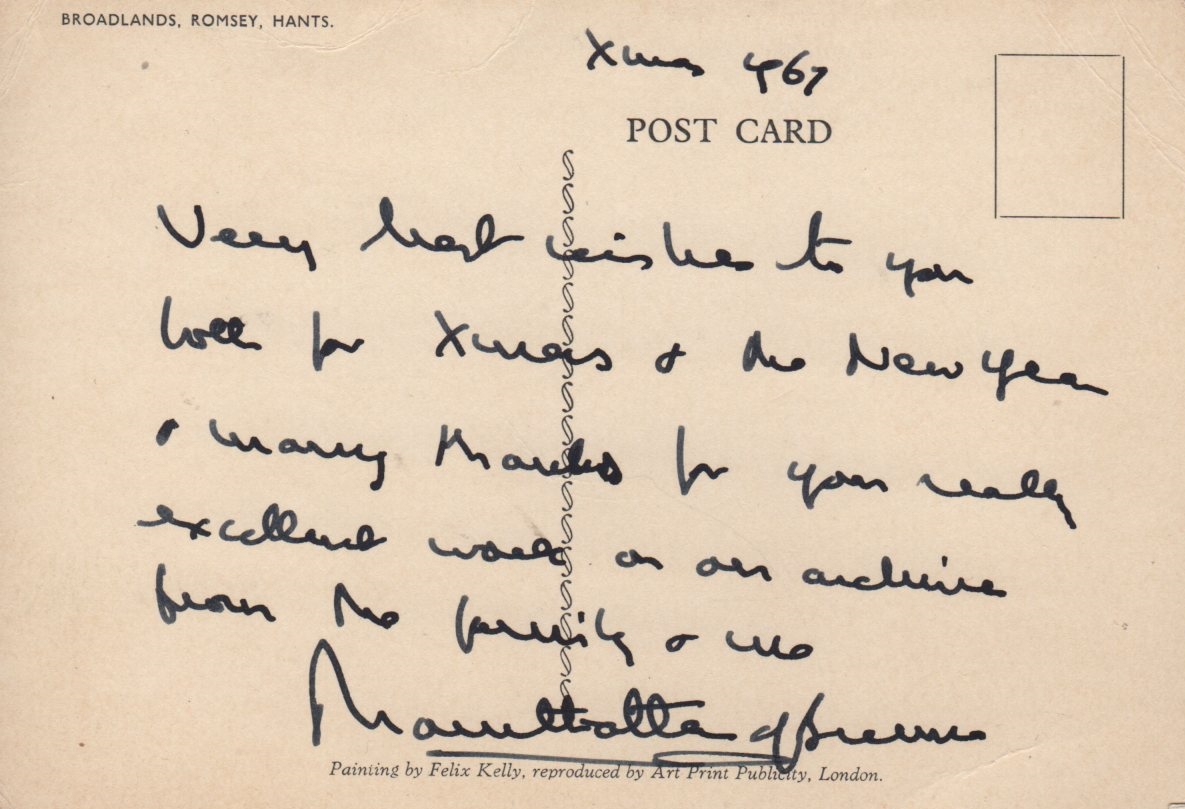 BROADLANDS, ROMSEY, HANTS.
Xmas 1967
POST CARD
Very best wishes to you
both for Xmas & the New Year
& many thanks for your really
excellent work on our archives
from the family & me
Mountbatten of Burma
Painting by Felix Kelly, reproduced by Art Print Publicity, London.